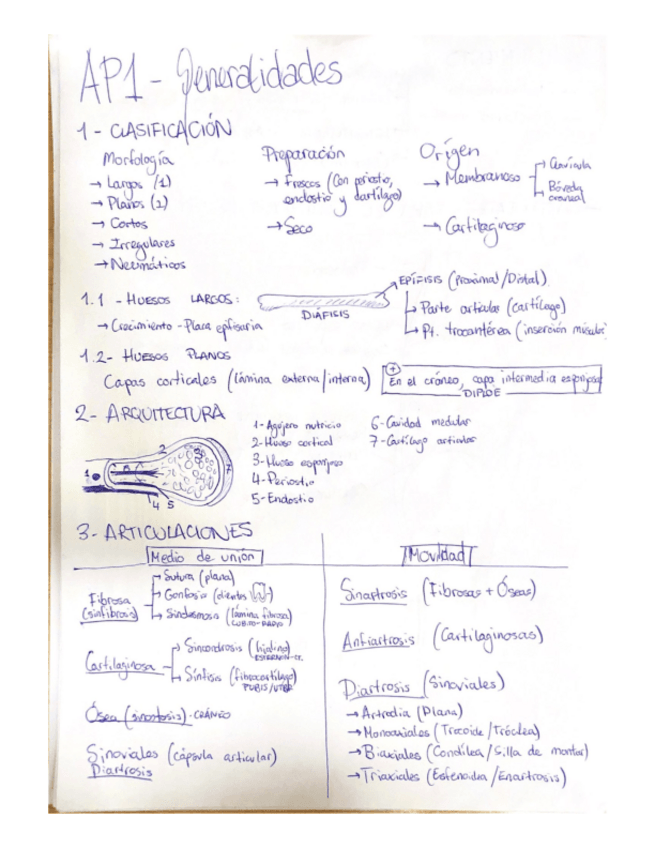 AP1 - Generalidades
1 - CLASIFICACIÓN
Morfología
→ Largos (1)
→ Planos (2)
→ Cortos
→ Irregulares
→ Neumáticos
Preparación
→ Frescos (Con periostio,
endostio y cartílago)
→ Seco
Orígen
→ Membranoso
Clavícula
Bóveda
craneal
→ Cartilaginoso
1.1 - HUESOS LARGOS:
→ Crecimiento - Placa epifisaria
DIÁFISIS
EPÍFISIS (Proximal/Distal)
Parte articular (cartílago)
Pt. trocantérea (inserción múscular
1.2- HUESOS PLANOS
Capas corticales (lámina externa/interna)
+
En el cráneo, capa intermedia esponjosa
DIPLOE
2- ARQUITECTURA
1 2 3 4 5 6 7
1- Agujero nutricio
2- Hueso cortical
3- Hueso esponjoso
4- Periostio
5- Endostio
6- Cavidad medular
7- Cartílago articular
3- ARTICULACIONES
Medio de unión
Fibrosa
(sinfibrosis)
Sutura (plana)
Gonfosis (dientes)
Sindesmosis (lámina fibrosa)
CÚBITO-RADIO
Cartilaginosa
Sincondrosis (hialino)
Sínfisis (fibrocartílago)
PUBIS/VTEB
Ósea (sinostosis) - CRÁNEO
Sinoviales (cápsula articular)
Diartrosis
Movilidad
Sinartrosis (Fibrosas + Óseas)
Anfiartrosis (Cartilaginosas)
Diartrosis (Sinoviales)
→ Artrodia (Plana)
→ Monoaxiales (Trocoide/Tróclea)
→ Biaxiales (Condílea/Silla de montar)
→ Triaxiales (Esfenoidea/Enartrosis)